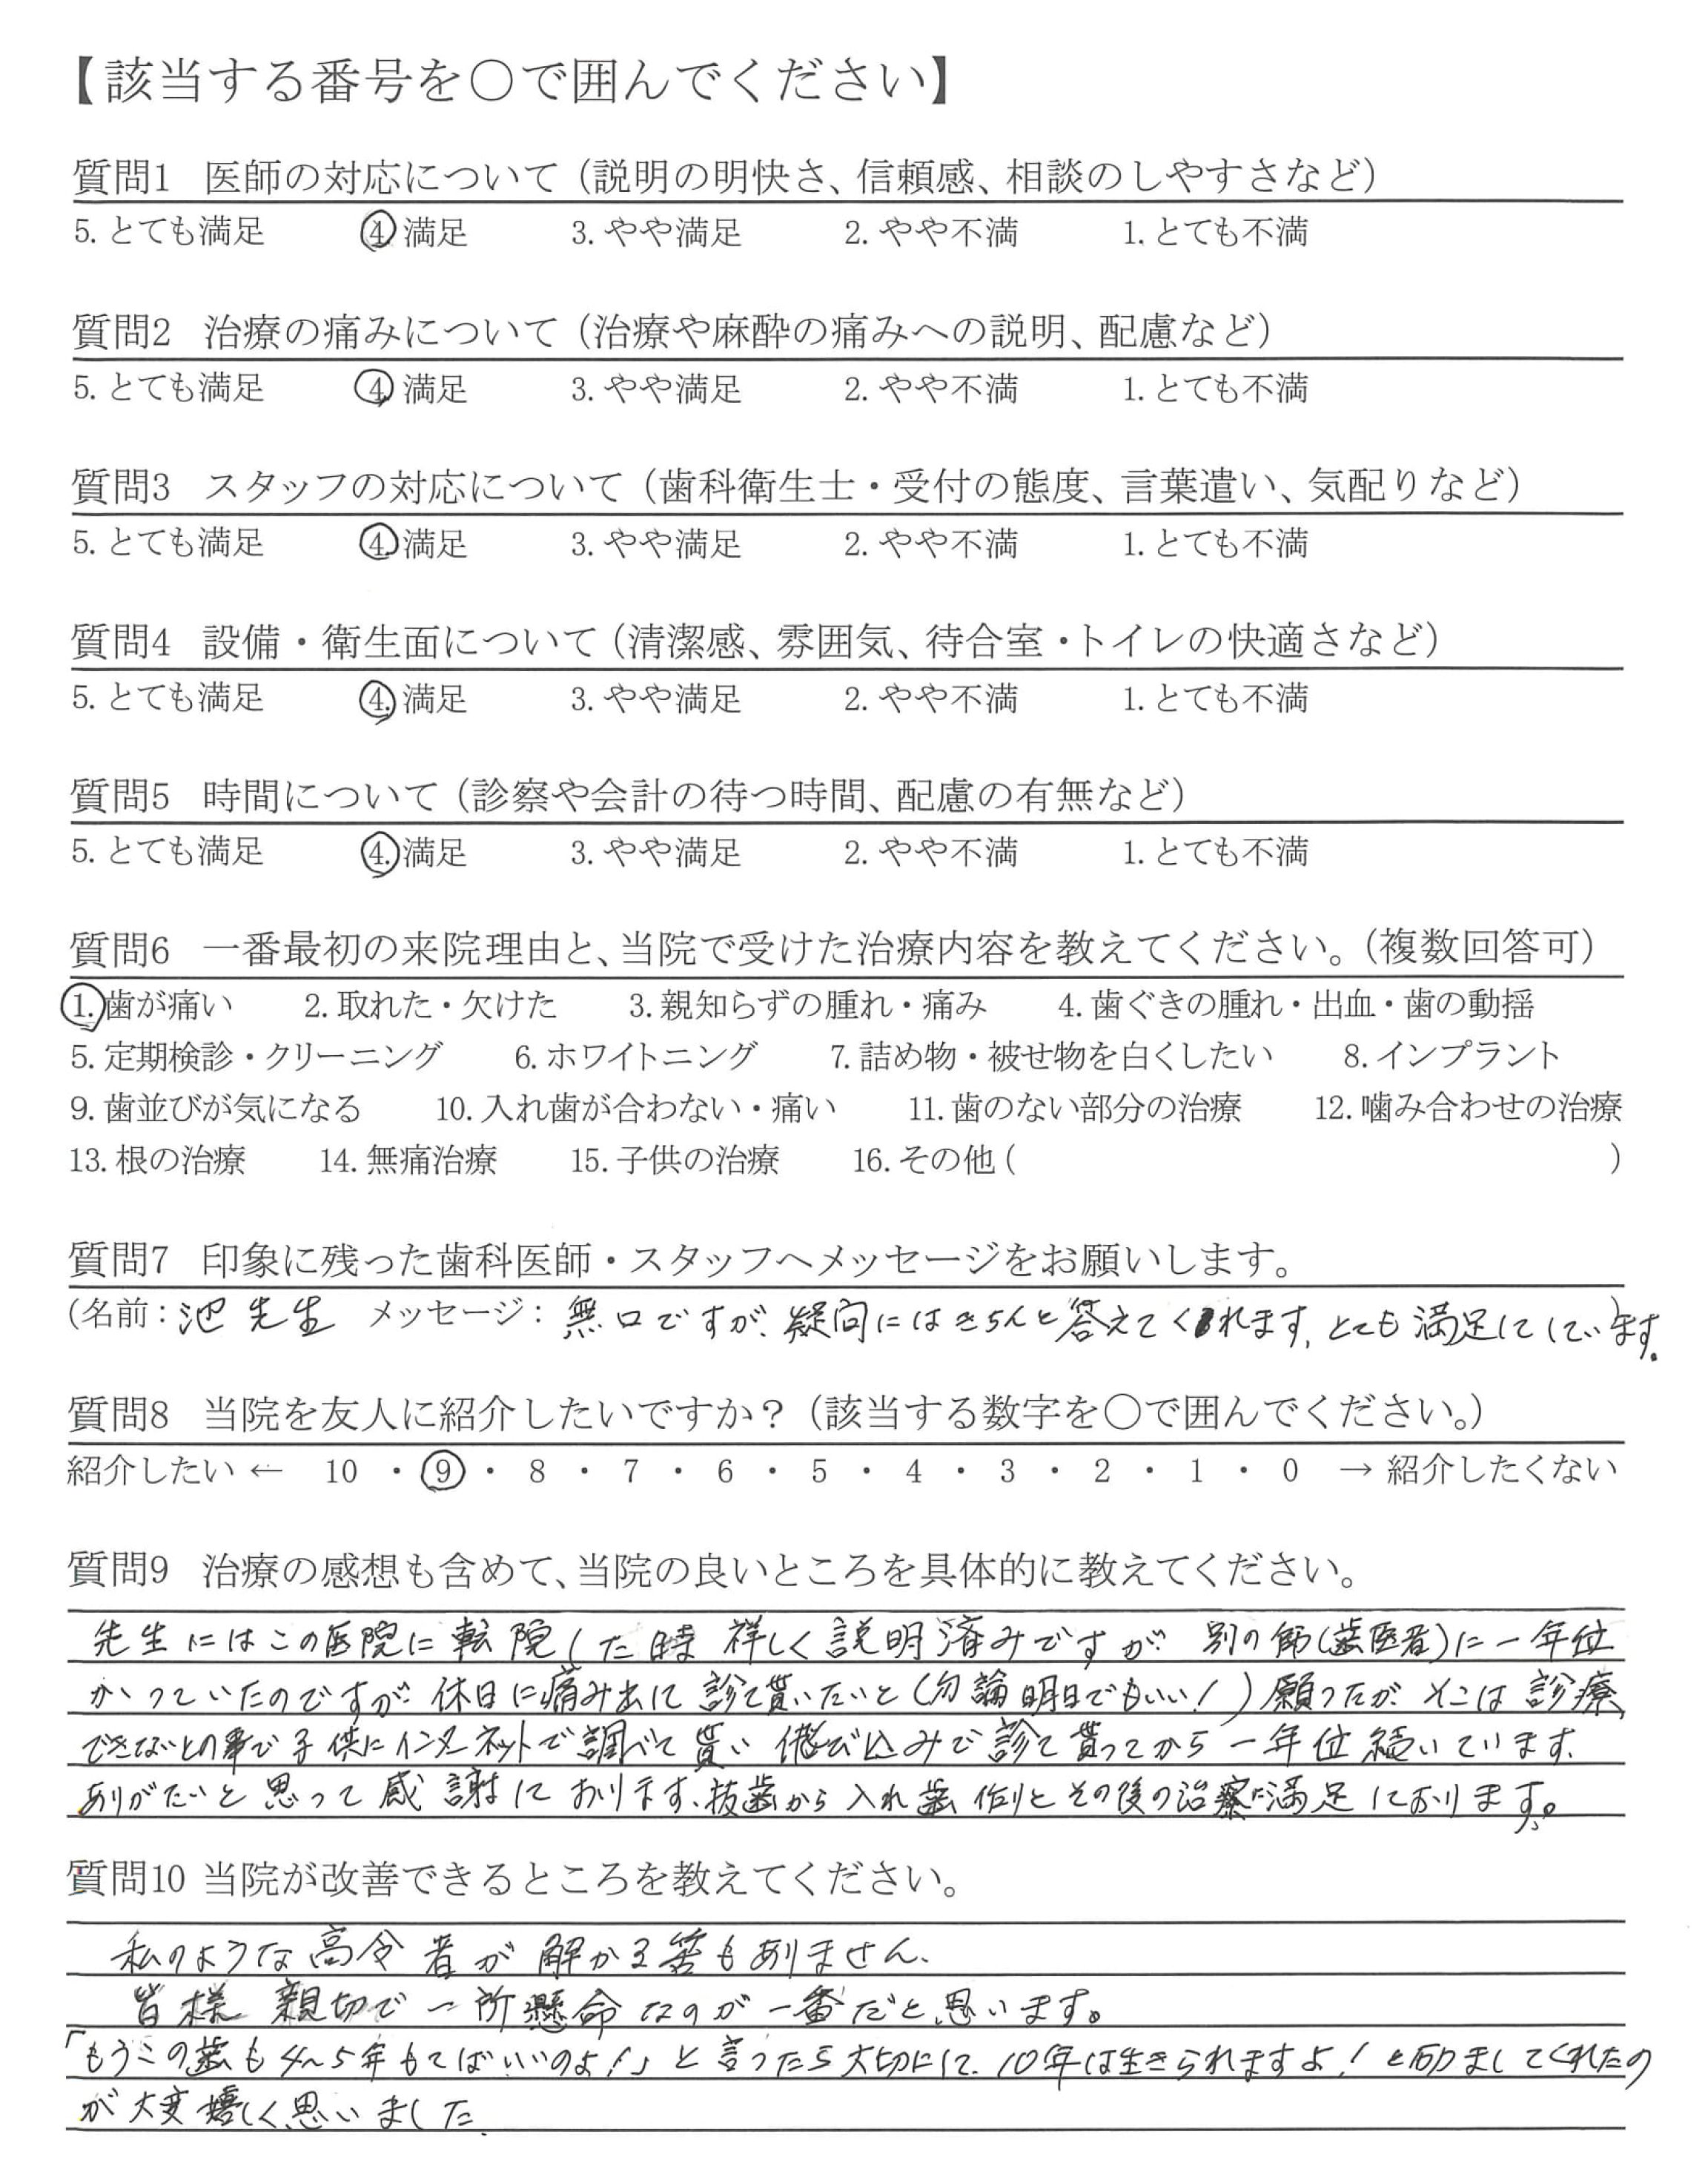 【該当する番号を○で囲んでください】
質問1 医師の対応について（説明の明快さ、信頼感、相談のしやすさなど）
5. とても満足 4. 満足 3. やや満足 2. やや不満 1. とても不満
質問2 治療の痛みについて（治療や麻酔の痛みへの説明、配慮など）
5. とても満足 4. 満足 3. やや満足 2. やや不満 1. とても不満
質問3 スタッフの対応について（歯科衛生士・受付の態度、言葉遣い、気配りなど）
5. とても満足 4. 満足 3. やや満足 2. やや不満 1. とても不満
質問4 設備・衛生面について（清潔感、雰囲気、待合室・トイレの快適さなど）
5. とても満足 4. 満足 3. やや満足 2. やや不満 1. とても不満
質問5 時間について（診察や会計の待つ時間、配慮の有無など）
5. とても満足 4. 満足 3. やや満足 2. やや不満 1. とても不満
質問6 一番最初の来院理由と、当院で受けた治療内容を教えてください。（複数回答可）
1. 歯が痛い 2. 取れた・欠けた 3. 親知らずの腫れ・痛み 4. 歯ぐきの腫れ・出血・歯の動揺
5. 定期検診・クリーニング 6. ホワイトニング 7. 詰め物・被せ物を白くしたい 8. インプラント
9. 歯並びが気になる 10. 入れ歯が合わない・痛い 11. 歯のない部分の治療 12. 噛み合わせの治療
13. 根の治療 14. 無痛治療 15. 子供の治療 16. その他（ ）
質問7 印象に残った歯科医師・スタッフへメッセージをお願いします。
（名前：池先生 メッセージ：無口ですが、疑問にはきちんと答えてくれます、とても満足しています。）
質問8 当院を友人に紹介したいですか？（該当する数字を○で囲んでください。）
紹介したい ← 10 ・ 9 ・ 8 ・ 7 ・ 6 ・ 5 ・ 4 ・ 3 ・ 2 ・ 1 ・ 0 → 紹介したくない
質問9 治療の感想も含めて、当院の良いところを具体的に教えてください。
先生にはこの医院に転院した時 祥しく説明済みですが 別の師（歯医者）に一年位
かかっていたのですが 休日に痛み出して診て貰いたいと（勿論明日でもいい！）願ったが そこは診療
できないとの事で子供にインターネットで調べて貰い 飛び込みで診て貰ってから一年位続いています、
ありがたいと思って感謝しております、抜歯から入れ歯作りとその後の治察に満足しております。
質問10 当院が改善できるところを教えてください。
私のような高令者が解かる筈もありません、
皆様 親切で一所懸命なのが一番だと思います。
「もうこの歯も4〜5年もてばいいのよ！」と言ったら大切にして、10年は生きられますよ！と励ましてくれたの
が大変嬉しく思いました、